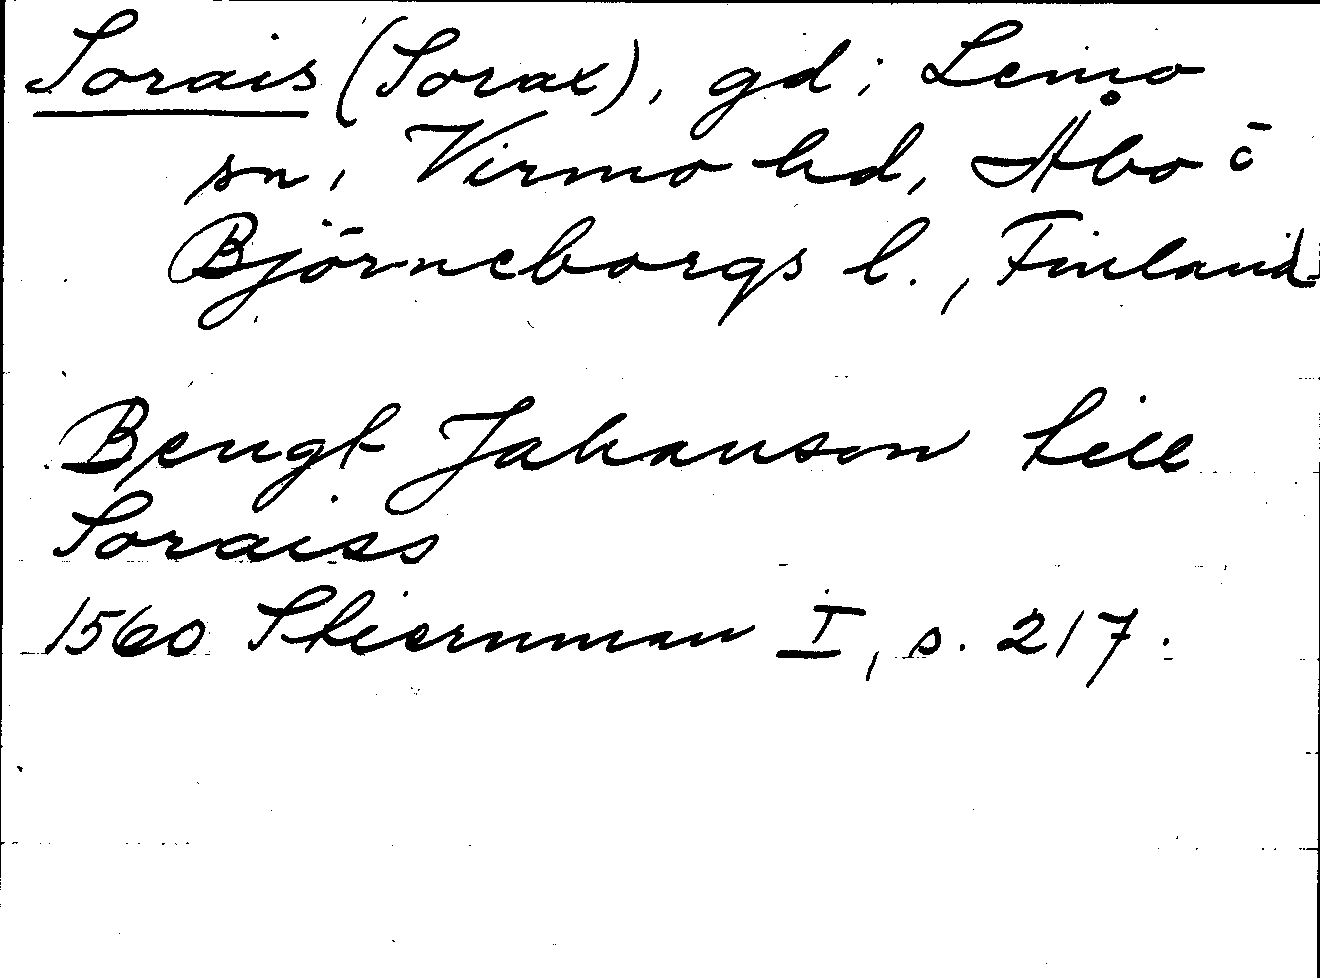 Sorais (Sorax), gd; Lemo
sn, Virmo hd, Åbo o
Björneborgs l., Finland
Bengt Johanson till
Soraiss
1560 Stiernman I, s. 217.